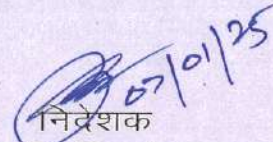 07/01/25
निदेशक